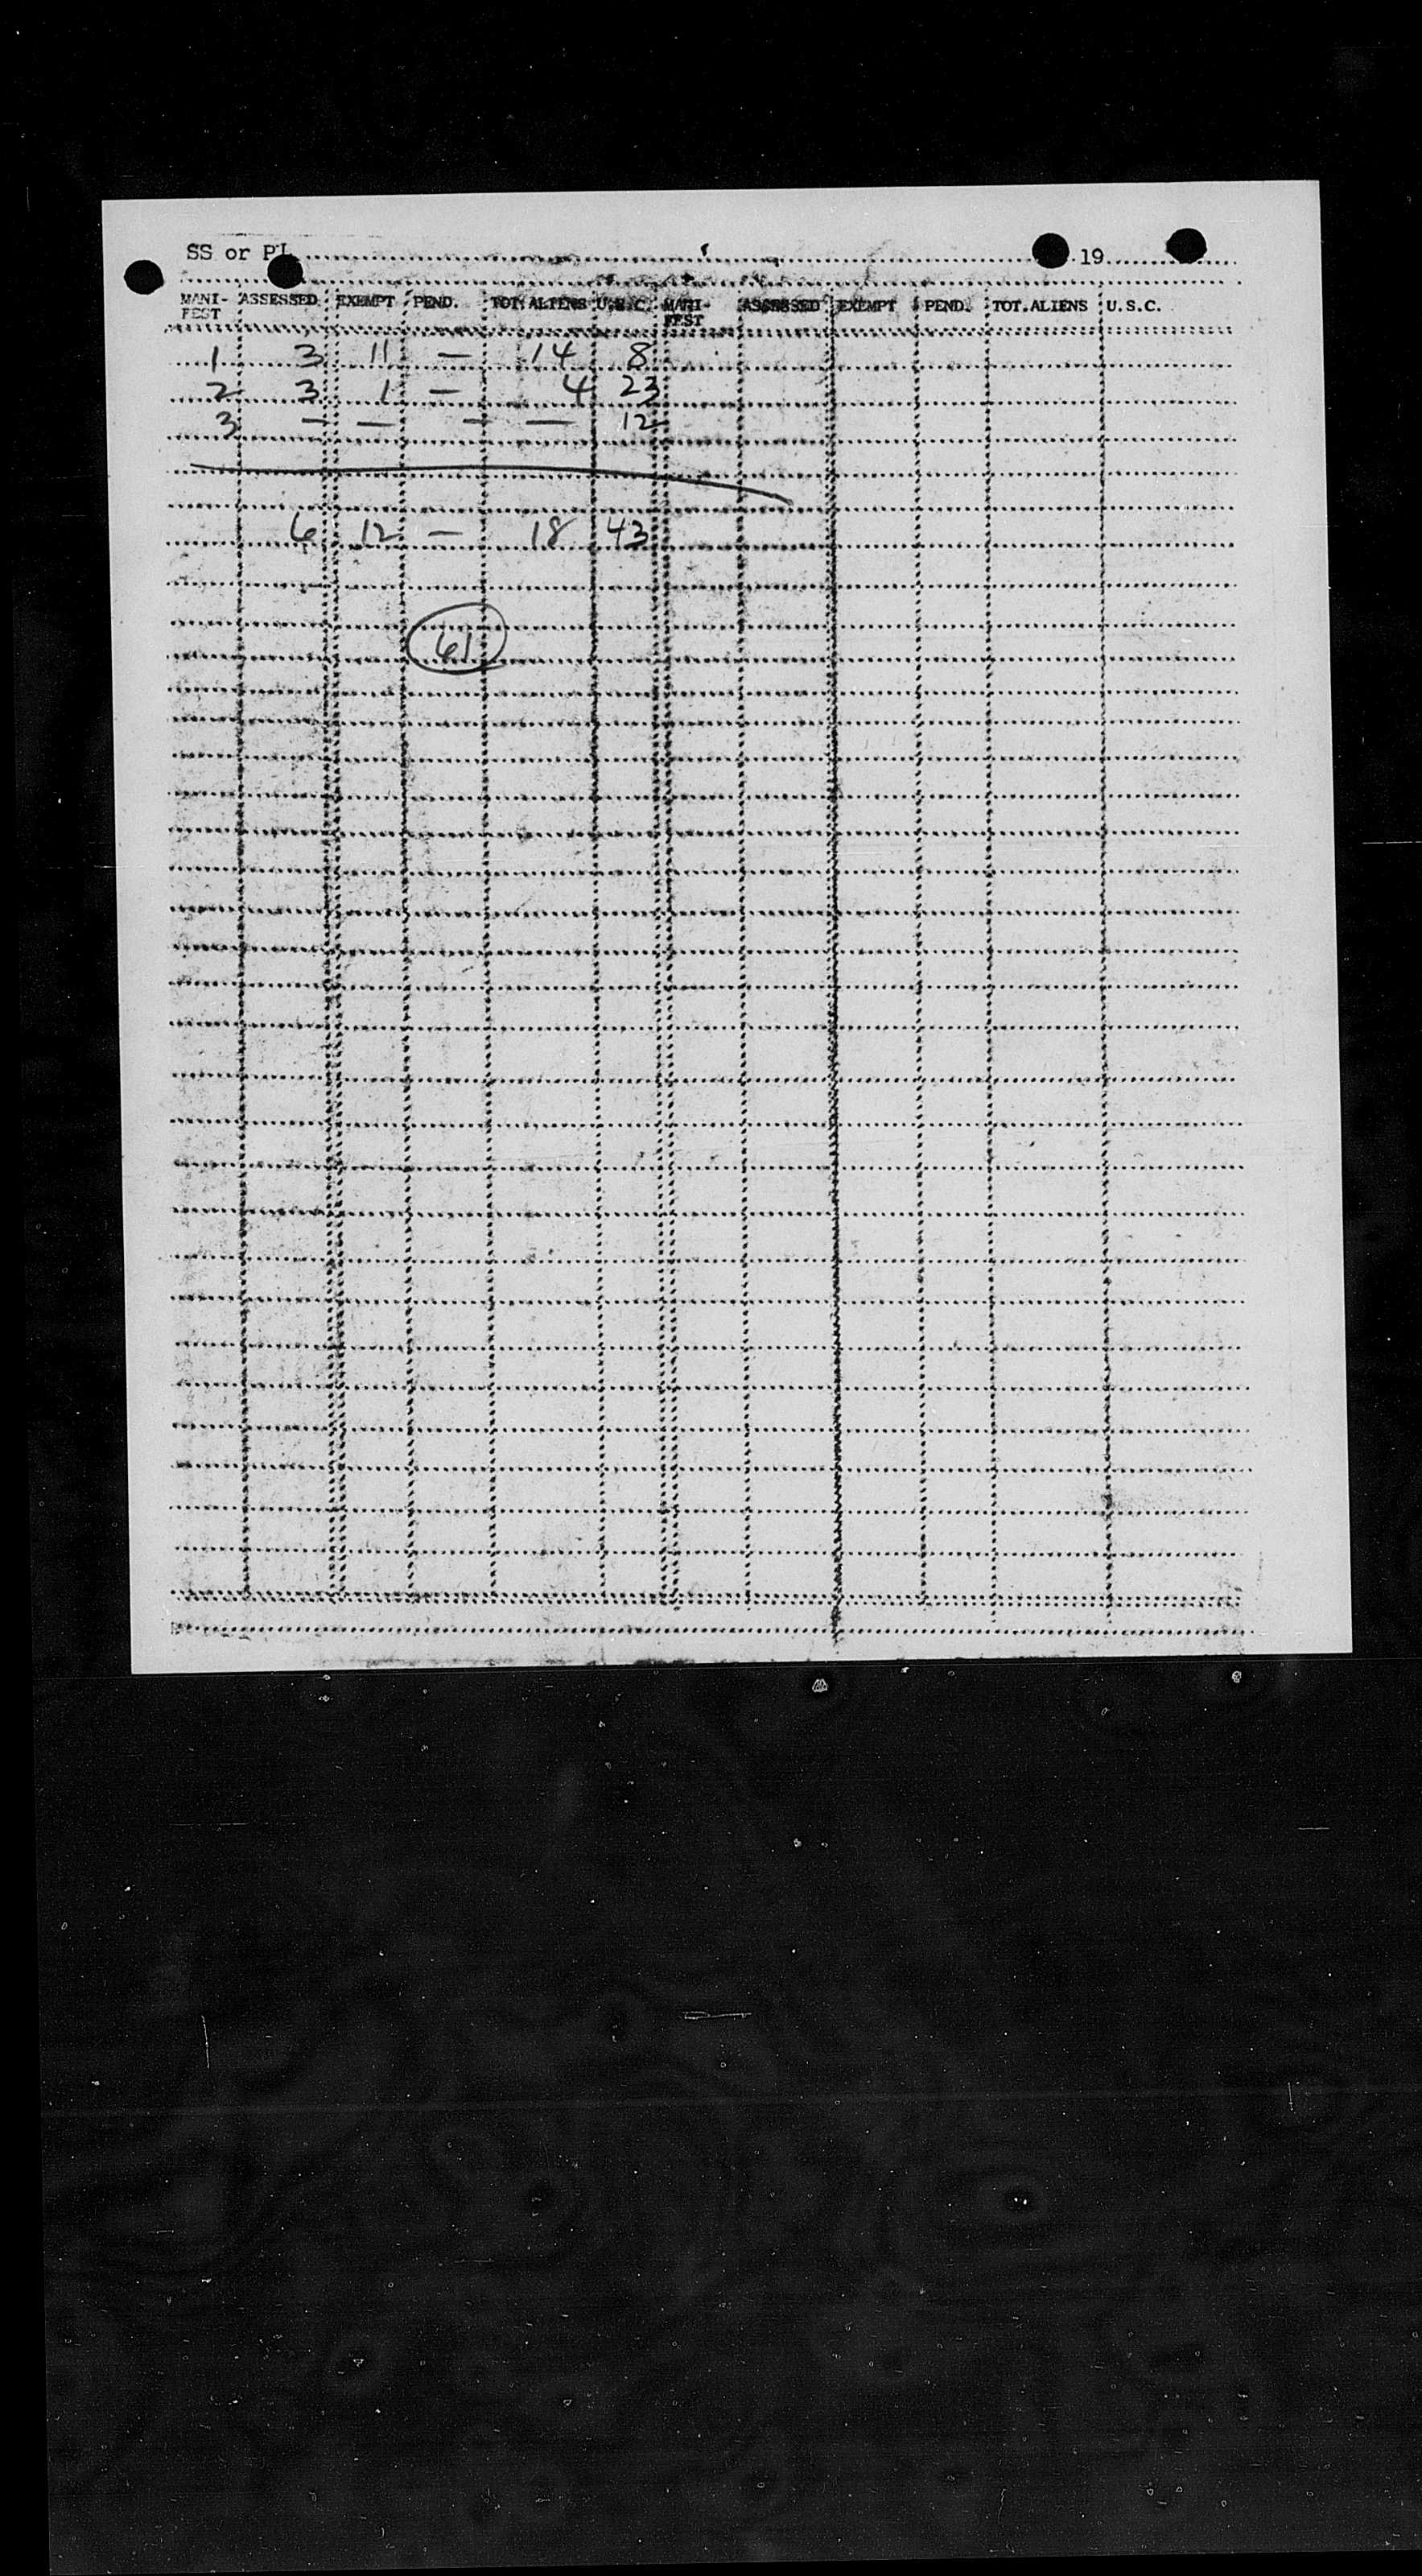 SS or PL 19
MANI- ASSESSED EXEMPT PEND. TOT.ALIENS U.S.C. MANI- ASSESSED EXEMPT PEND. TOT.ALIENS U.S.C.
FEST FEST
1 3 11 — 14 8
2 3 1 — 4 23
3 — — — — 12
6 12 — 18 43
61